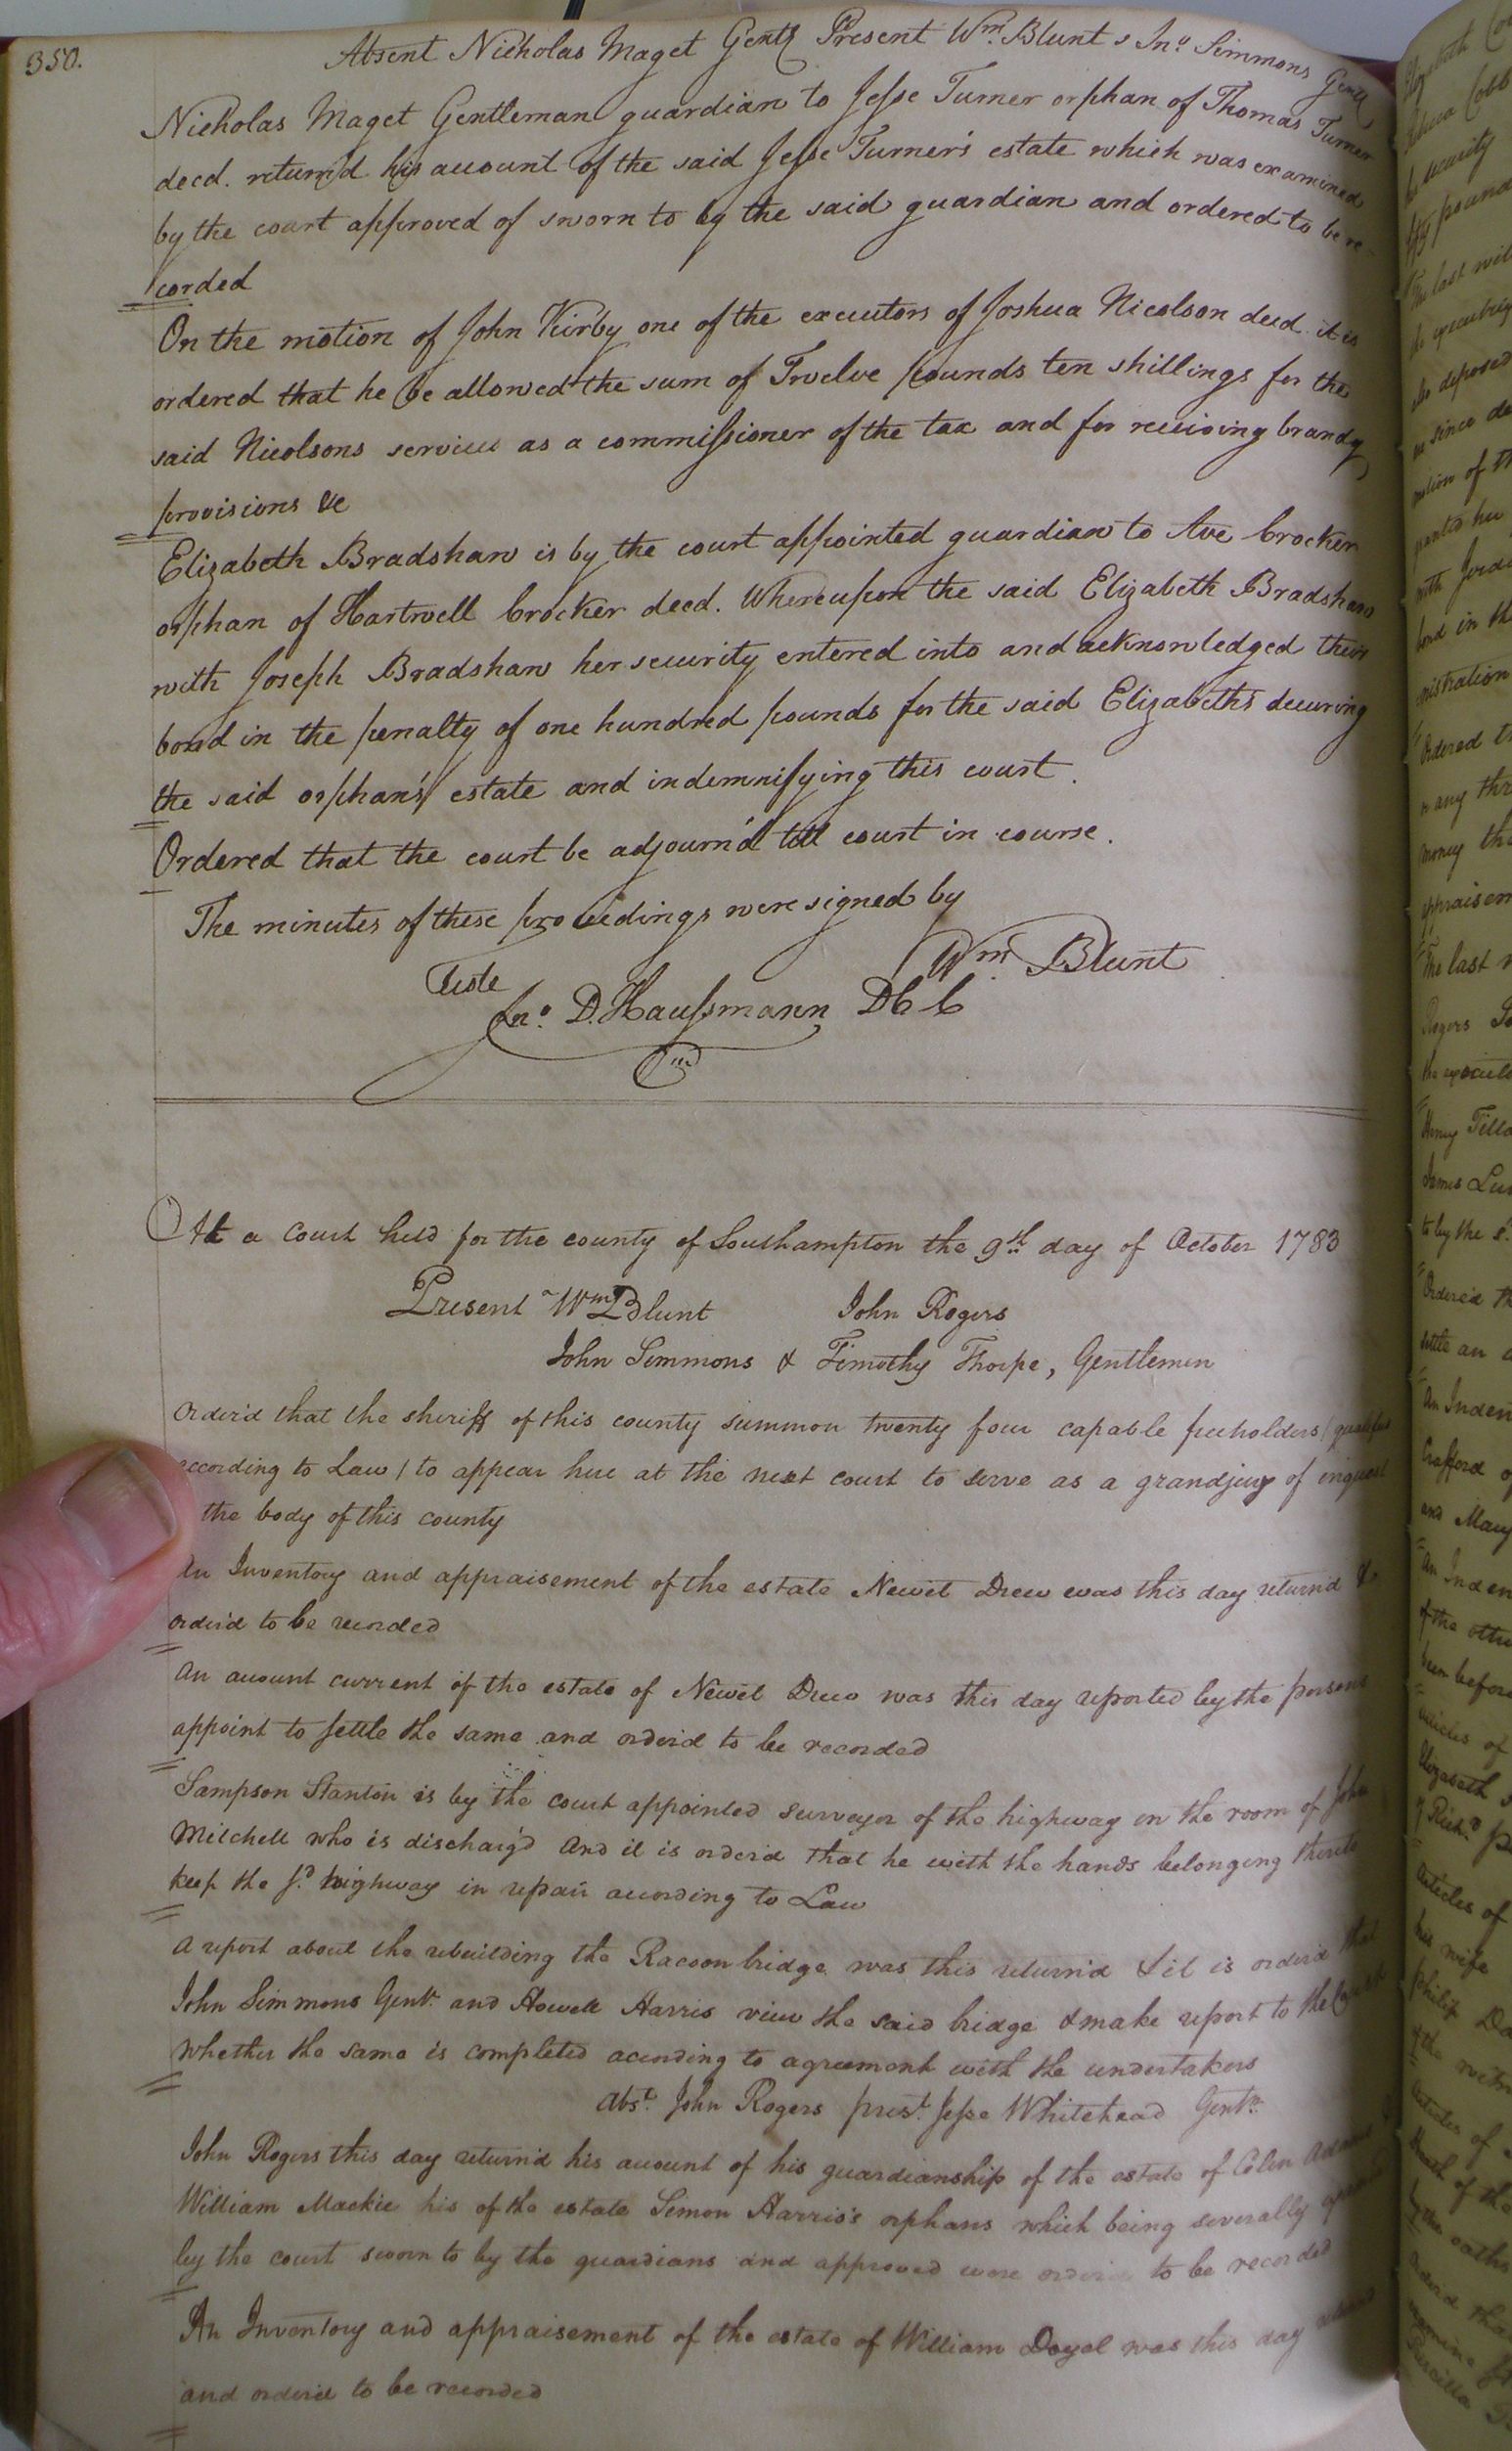 350.
Absent Nicholas Maget Gentl Present Wm. Blunt & Jno. Simmons Gentl
Nicholas Maget Gentleman guardian to Jesse Turner orphan of Thomas Turner
decd. return'd his account of the said Jesse Turner's estate which was examined
by the court approved of sworn to by the said guardian and ordered to be re-
corded
On the motion of John Kirby one of the executors of Joshua Nicolson decd. it is
ordered that he be allowed the sum of Twelve pounds ten shillings for the
said Nicolsons services as a commissioner of the tax and for receiving brandy
provisions &c
Elizabeth Bradshaw is by the court appointed guardian to Ave Crocker
orphan of Hartwell Crocker decd. Whereupon the said Elizabeth Bradshaw
with Joseph Bradshaw her security entered into and acknowledged their
bond in the penalty of one hundred pounds for the said Elizabeth's securing
the said orphan's estate and indemnifying this court.
Ordered that the court be adjourn'd till court in course.
The minutes of these proceedings were signed by
Wm. Blunt
Teste
Jno. D. Haussmann DCC
At a Court held for the county of Southampton the 9th day of October 1783
Present Wm Blunt John Rogers
John Simmons & Timothy Thorpe, Gentlemen
Order'd that the sheriff of this county summon twenty four capable freeholders (qualified
according to Law) to appear here at the next court to serve as a grandjury of inquest
the body of this county
An Inventory and appraisement of the estate Newit Drew was this day return'd &
order'd to be recorded
An account current of the estate of Newit Drew was this day reported by the persons
appoint to settle the same and order'd to be recorded
Sampson Stanton is by the court appointed surveyor of the highway in the room of John
Mitchell who is discharg'd And it is order'd that he with the hands belonging thereto
keep the sd. highway in repair according to Law
A report about the rebuilding the Racoon bridge was this return'd & it is order'd that
John Simmons Gentn. and Howell Harris view the said bridge & make report to the Court
whether the same is completed according to agreement with the undertakers
Abst. John Rogers prest. Jesse Whitehead Gentn.
John Rogers this day return'd his account of his guardianship of the estate of Colin Adams
William Mackie his of the estate Simon Harris's orphans which being severally
by the court sworn to by the guardians and approved were order'd to be recorded
An Inventory and appraisement of the estate of William Doyel was this day
and order'd to be recorded